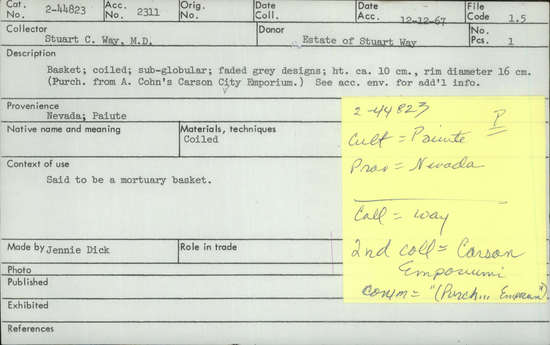 Cat. No. 2-44823 Acc. No. 2311 Orig. No. Date Coll. Date Acc. 12-12-67 File Code 1.5
Collector Stuart C. Way, M.D. Donor Estate of Stuart Way No. Pcs. 1
Description
Basket; coiled; sub-globular; faded grey designs; ht. ca. 10 cm., rim diameter 16 cm.
(Purch. from A. Cohn's Carson City Emporium.) See acc. env. for add'l info.
Provenience
Nevada; Paiute
Native name and meaning
Materials, techniques
Coiled
Context of use
Said to be a mortuary basket.
Made by Jennie Dick Role in trade
Photo
Published
Exhibited
References
2-44823
P
Cult = Paiute
Prov = Nevada
Coll = Way
2nd coll = Carson
Emposiumi
comm = "(Purch... Emporium)"